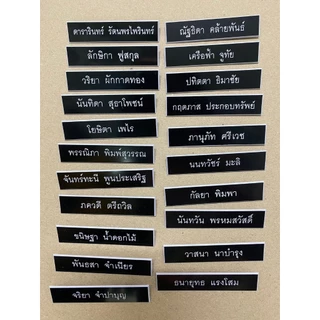 ดารารินทร์ รัตนพรไพรินทร์
ลักษิกา ฟูสกุล
วริยา ผักกาดทอง
นันทิดา สุธาโพชน์
โยษิตา เพไร
พรรณิภา พิมพ์สุวรรณ
จันทร์ทะนี พูนประเสริฐ
ภควดี ตรีถวิล
ขนิษฐา น้ำดอกไม้
พันธสา จำเนียร
จริยา จำปาบุญ
ณัฐธิดา คล้ายพันธ์
เครือฟ้า จูทัย
ปทิตตา ธิมาชัย
กฤตภาส ประกอบทรัพย์
ภานุภัท ศรีเวช
นนทวัชร์ มะลิ
กัลยา พิมพา
นันทวัน พรหมสวัสดิ์
วาสนา นาบำรุง
ธนายุทธ แรงโสม